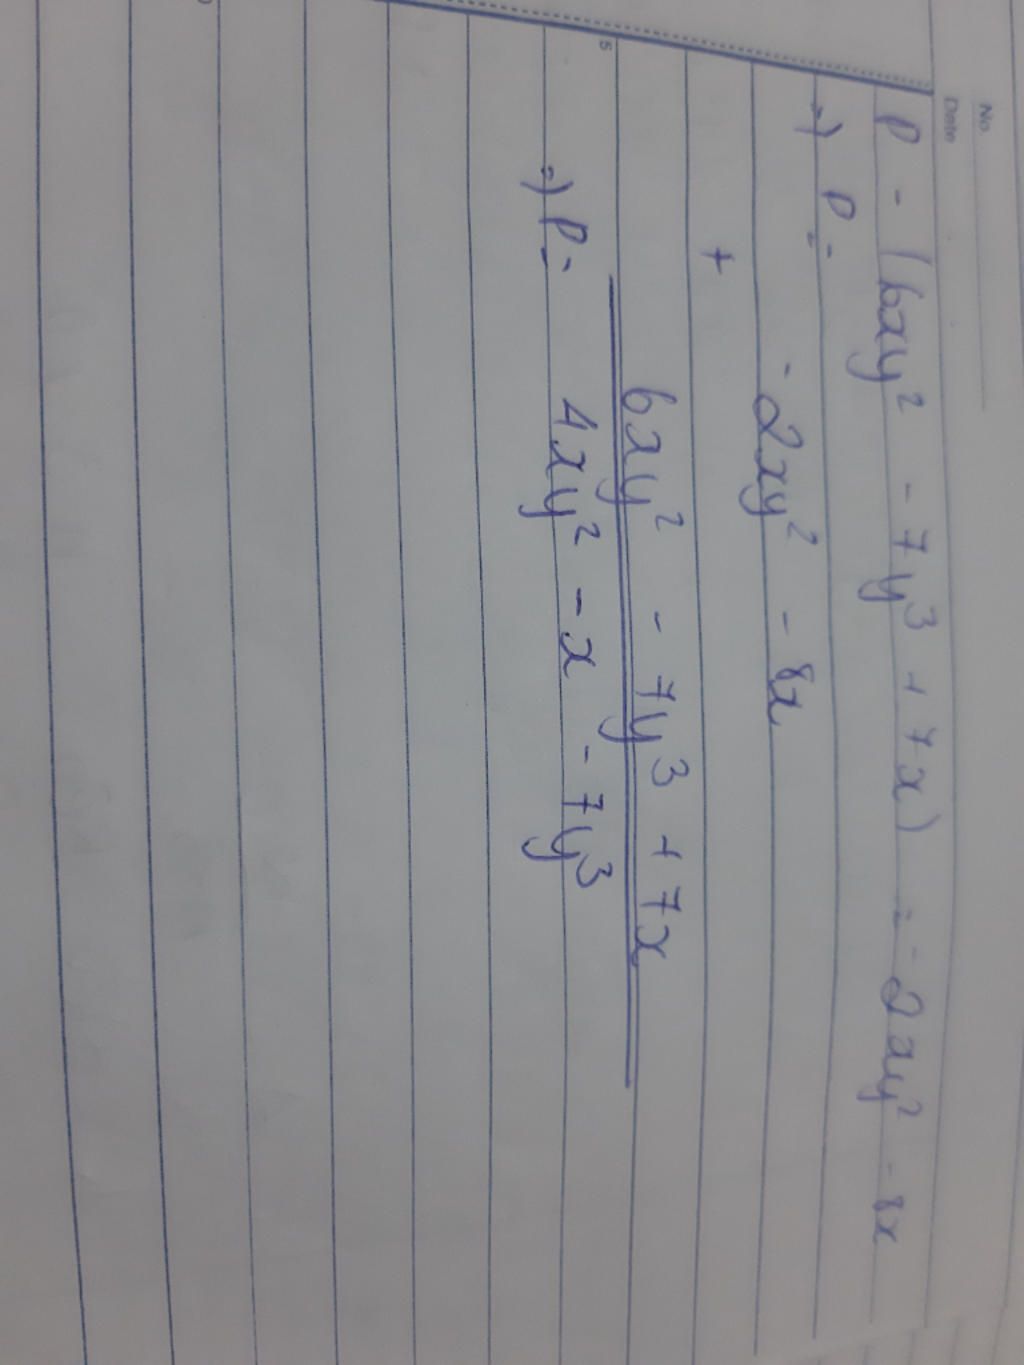 No.
Date
P - (6xy² - 7y³ + 7x) = -2xy² - 8x
=) P =
-2xy² - 8x
+
6xy² - 7y³ + 7x
5
=) P = 4xy² - x - 7y³